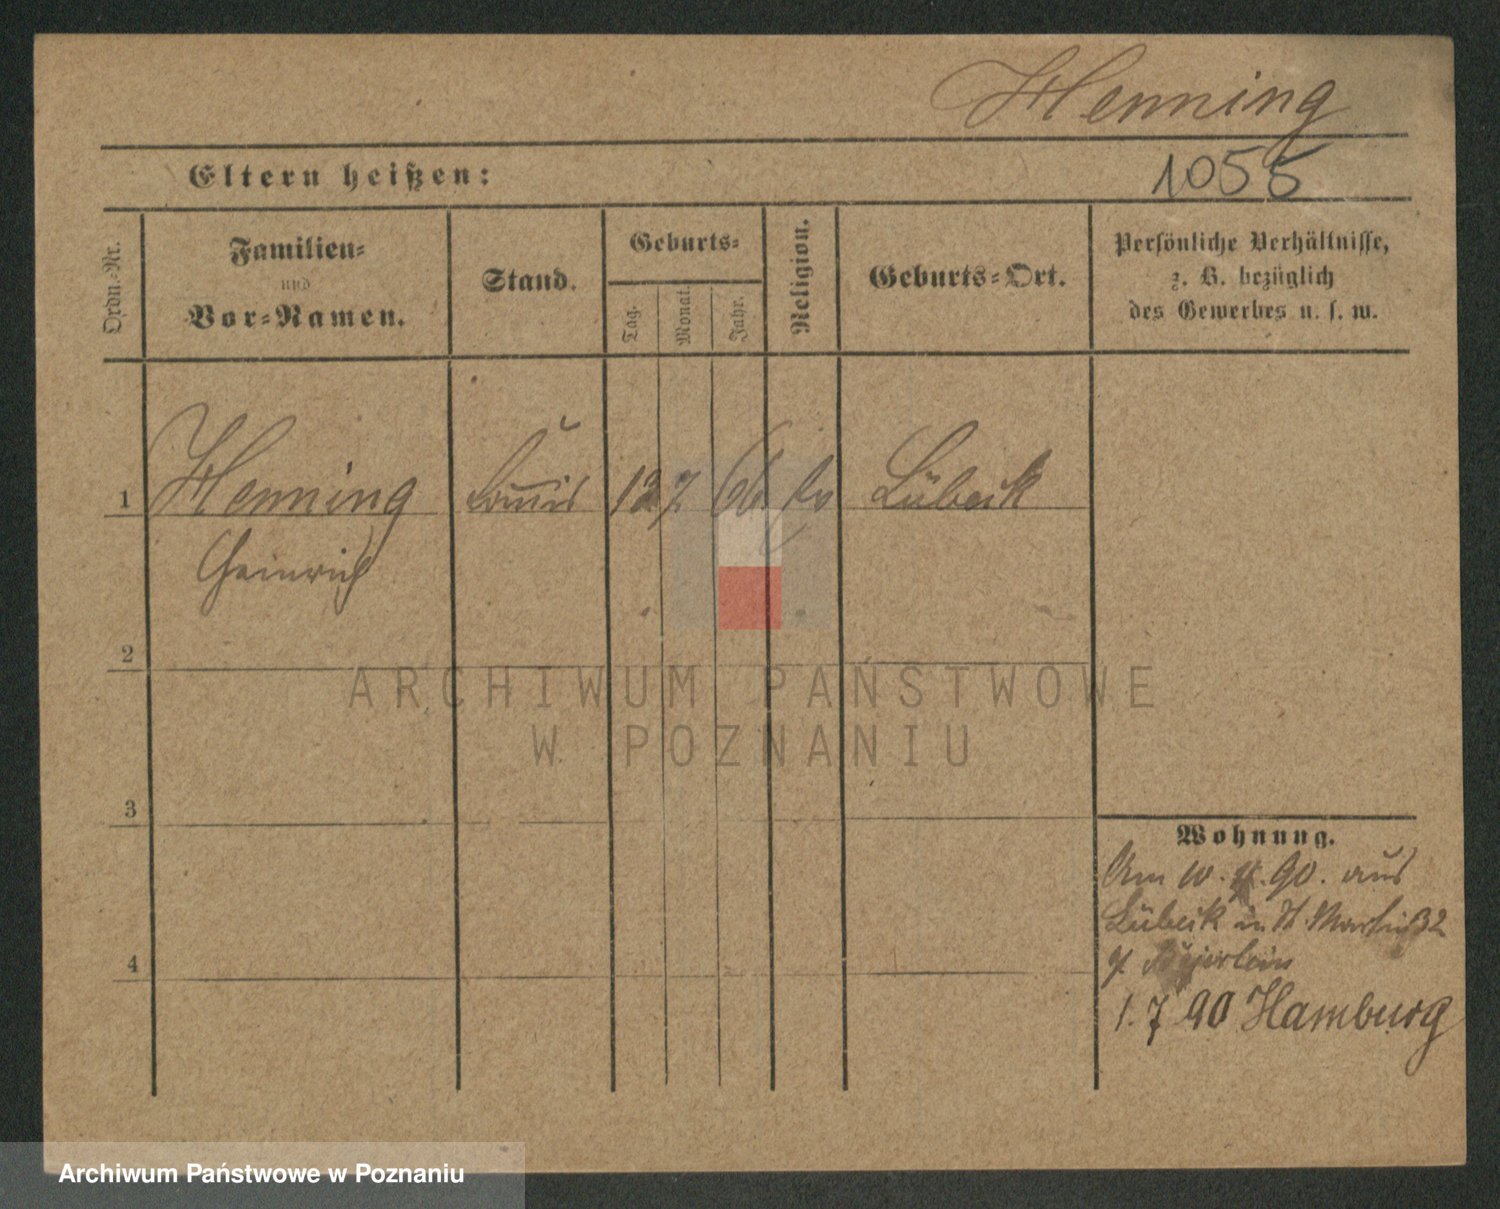 Henning
1055
Eltern heißen:
Ordn.-Nr.
Familien-
und
Vor-Namen.
Stand.
Geburts-
Tag.
Monat.
Jahr.
Religion.
Geburts-Ort.
Persönliche Verhältnisse,
z. B. bezüglich
des Gewerbes u. s. w.
1 Henning 7 66 ev Lübeck
Heinrich
2
3
4
Wohnung.
Am 10. 90. aus
Lübeck in St. Martin 32
1. 7 90 Hamburg
ARCHIWUM PAŃSTWOWE
W POZNANIU
Archiwum Państwowe w Poznaniu